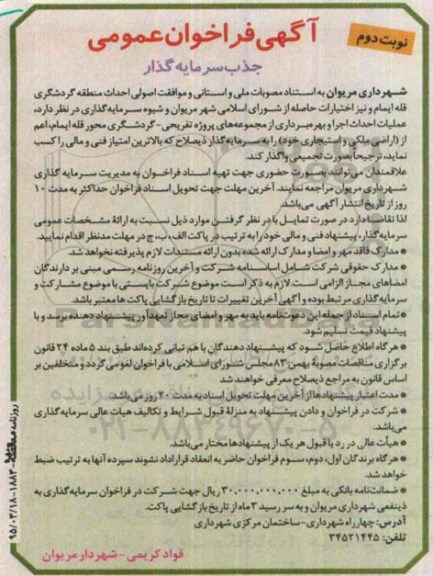 نوبت دوم
آگهی فراخوان عمومی
جذب سرمایه گذار
شهرداری مریوان به استناد مصوبات ملی و استانی و موافقت اصولی احداث منطقه گردشگری
قله ایمام و نیز اختیارات حاصله از شورای اسلامی شهر مریوان و شیوه سرمایه گذاری در نظر دارد،
عملیات احداث اجرا و بهره برداری از مجموعه‌های پروژه تفریحی - گردشگری محور قله ایمام، اعم
از (اراضی ملکی و استیجاری خود) را به سرمایه گذار ذیصلاح که بالاترین امتیاز فنی و مالی را کسب
نماید، ترجیحاً بصورت تجمیعی واگذار کند.
علاقمندان می‌توانند بصورت حضوری جهت تهیه اسناد فراخوان به مدیریت سرمایه گذاری
شهرداری مریوان مراجعه نمایند. آخرین مهلت جهت تحویل اسناد فراخوان حداکثر به مدت ۱۰
روز از تاریخ انتشار آگهی می‌باشد.
لذا تقاضا دارد در صورت تمایل با در نظر گرفتن موارد ذیل نسبت به ارائه مشخصات عمومی
سرمایه گذار، پیشنهاد فنی و مالی خود را به ترتیب در پاکت الف، ب، ج در مهلت مدنظر اقدام نمایید.
* مدارک فاقد مهر و امضا و مدارک ارائه شده بدون ارائه مستندات لازم پذیرفته نخواهد شد.
* مدارک حقوقی شرکت شامل اساسنامه شرکت و آخرین روزنامه رسمی مبنی بر دارندگان
امضاهای مجاز الزامی است. لازم به ذکر است موضوع شرکت بایستی با موضوع مشارکت و
سرمایه گذاری مرتبط بوده و آگهی آخرین تغییرات تا تاریخ بازگشایی پاکت ها معتبر باشد.
* تمام اسناد از جمله این دعوت‌نامه باید به مهر و امضای مجاز تعهدآور پیشنهاد دهنده برسد و با
پیشنهاد قیمت تسلیم شود.
* هر گاه اطلاع حاصل شود که پیشنهاد دهندگان با هم تبانی کرده‌اند طبق بند ۵ ماده ۲۴ قانون
برگزاری مناقصات مصوبه بهمن ۸۳ مجلس شورای اسلامی با فراخوان لغو می گردد و متخلفین بر
اساس قانون به مراجع ذیصلاح معرفی خواهند شد
* مدت اعتبار پیشنهادها از آخرین مهلت تحویل اسناد به مدت ۲۰ روز می باشد.
* شرکت در فراخوان و دادن پیشنهاد به منزلة قبول شرایط و تکالیف هیات عالی سرمایه گذاری
می‌باشد.
* هیأت عالی در رد یا قبول هر یک از پیشنهادها مختار می‌باشد.
* هر گاه برندگان اول، دوم، سوم فراخوان حاضر به انعقاد قرارداد نشوند سپرده آنها به ترتیب ضبط
خواهد شد.
* ضمانت‌نامه بانکی به مبلغ ۳۰,۰۰۰,۰۰۰,۰۰۰ ریال جهت شرکت در فراخوان سرمایه گذاری به
ذینفعی شهرداری مریوان و به سر رسید ۳ ماه از تاریخ بازگشایی پاکت.
آدرس: چهارراه شهرداری - ساختمان مرکزی شهرداری
تلفن: ۳۴۵۲۱۴۴۵
فواد کریمی - شهردار مریوان
۰۲۱-۸۸۳۴۹۶۷۰-۵